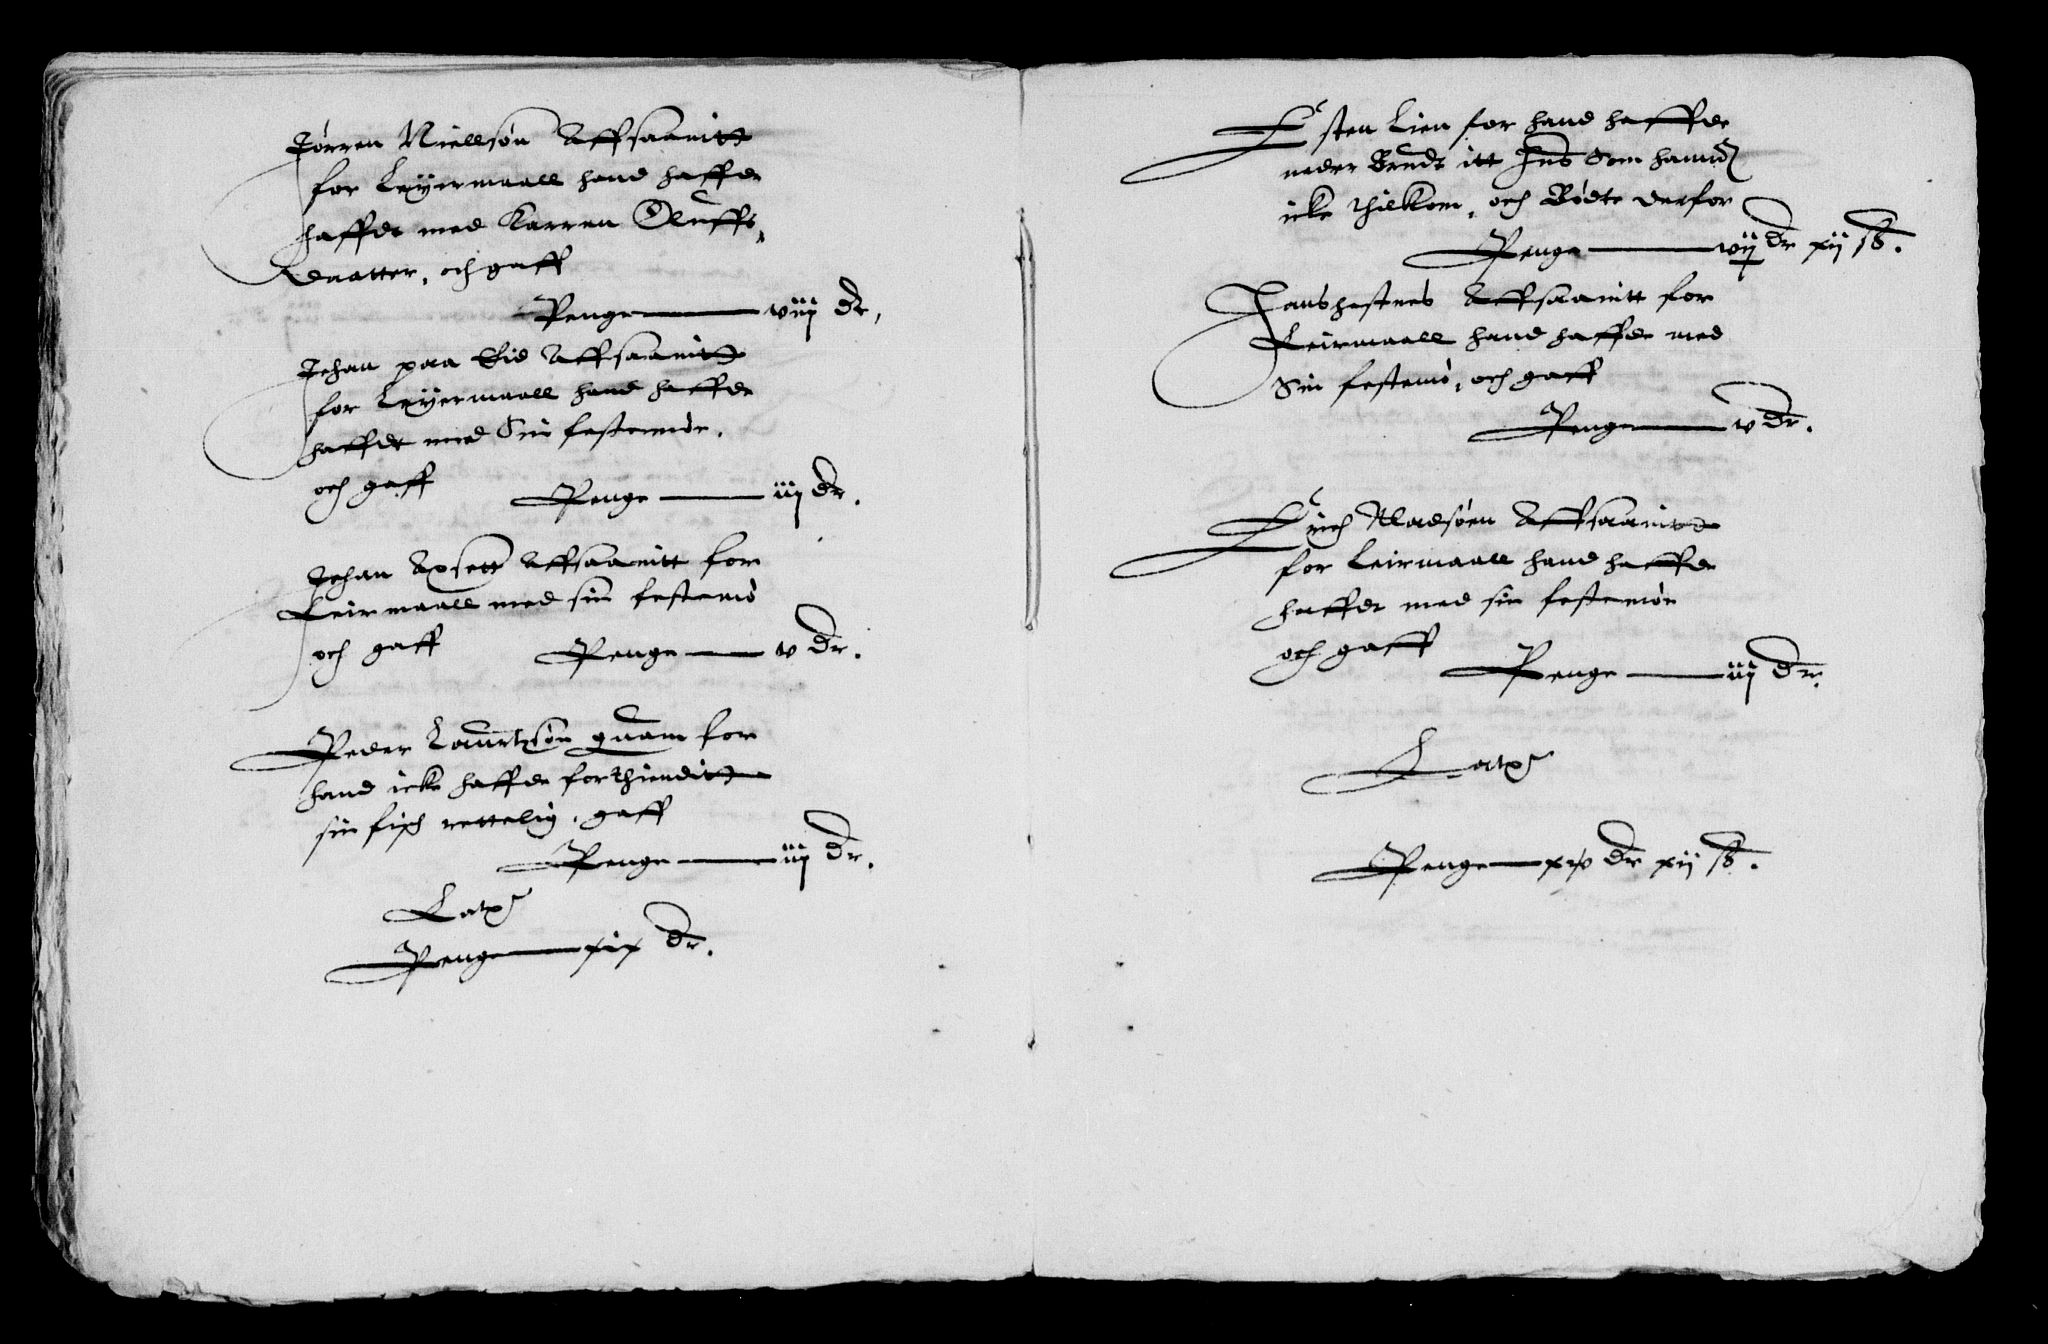 Jørren Nielssøn Affsaanitt
for Leÿermaall hand haffde
hafft med Karren Oluffs
daatter, och gaff
Penge — viij dr,
Johan paa Eid Affsaanitt
for Leÿermaall hand haffde
hafft med Sin festemøe,
och gaff Penge — iij dr.
Johan Axsett Affsaanitt for
Leirmaall med sin festemø
och gaff Penge — v dr.
Peder Lauritzsøn quam for
hand icke haffde forthienditt
sin fisch rettelig, gaff
Penge — iij dr.
Latus
Penge — xix dr.
Østen Lien for hand haffde
neder Brudt itt Hus Som hannem
icke thilkom, och Bødte derfor
Penge — vij dr xij ß.
Hans Affsaanitt for
Leirmaall hand haffde med
Sin festemø, och gaff
Penge — v dr.
Erich Madsøen Affsaanitt
for Leirmaall hand haffde
hafft med sin festemøe
och gaff
Penge — iij dr.
Latus
Penge — xv dr xij ß.